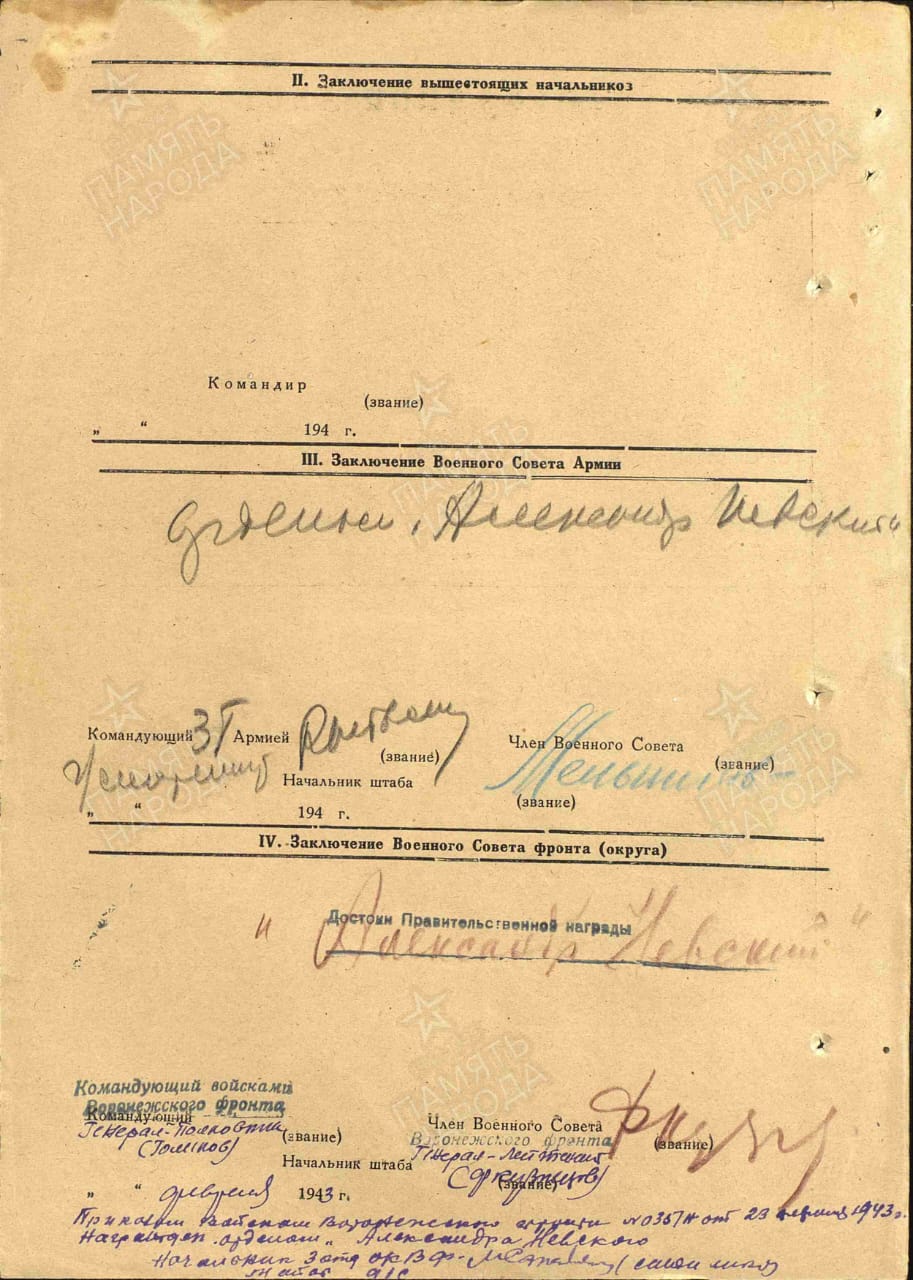 II. Заключение вышестоящих начальников
ПАМЯТЬ НАРОДА
ПАМЯТЬ НАРОДА
Командир
(звание)
„ “ 194 г.
ПАМЯТЬ НАРОДА
III. Заключение Военного Совета Армии
орденом „Александр Невский“
Командующий 3Т Армией
Член Военного Совета
(звание)
(звание)
Начальник штаба
(звание)
„ “ 194 г.
ПАМЯТЬ НАРОДА
ПАМЯТЬ НАРОДА
IV. Заключение Военного Совета фронта (округа)
Достоин Правительственной награды
"Александр Невский"
ПАМЯТЬ НАРОДА
Командующий войсками
Воронежского фронта
Командующий
Член Военного Совета
Воронежского фронта
Генерал-Полковник (звание)
Генерал-Лейтенант (звание)
(Голиков)
Начальник штаба
(Ф Кузнецов) (звание)
„ “ февраля 1943 г.
Приказом Войскам Воронежского фронта №035/н от 1943 г.
Награжден орденом „Александра Невского
Начальник 3 отд ОК ВФ